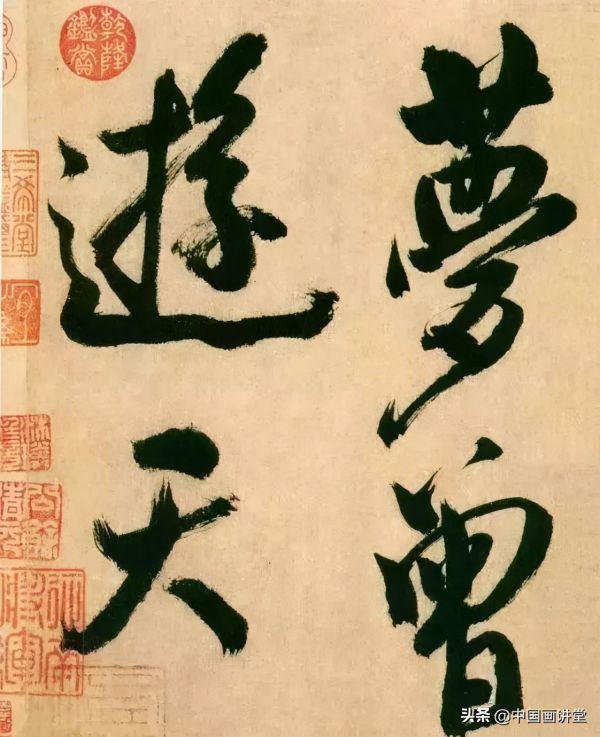 夢曾
遊天
乾隆鑑賞
三希堂
头条 @中国画讲堂